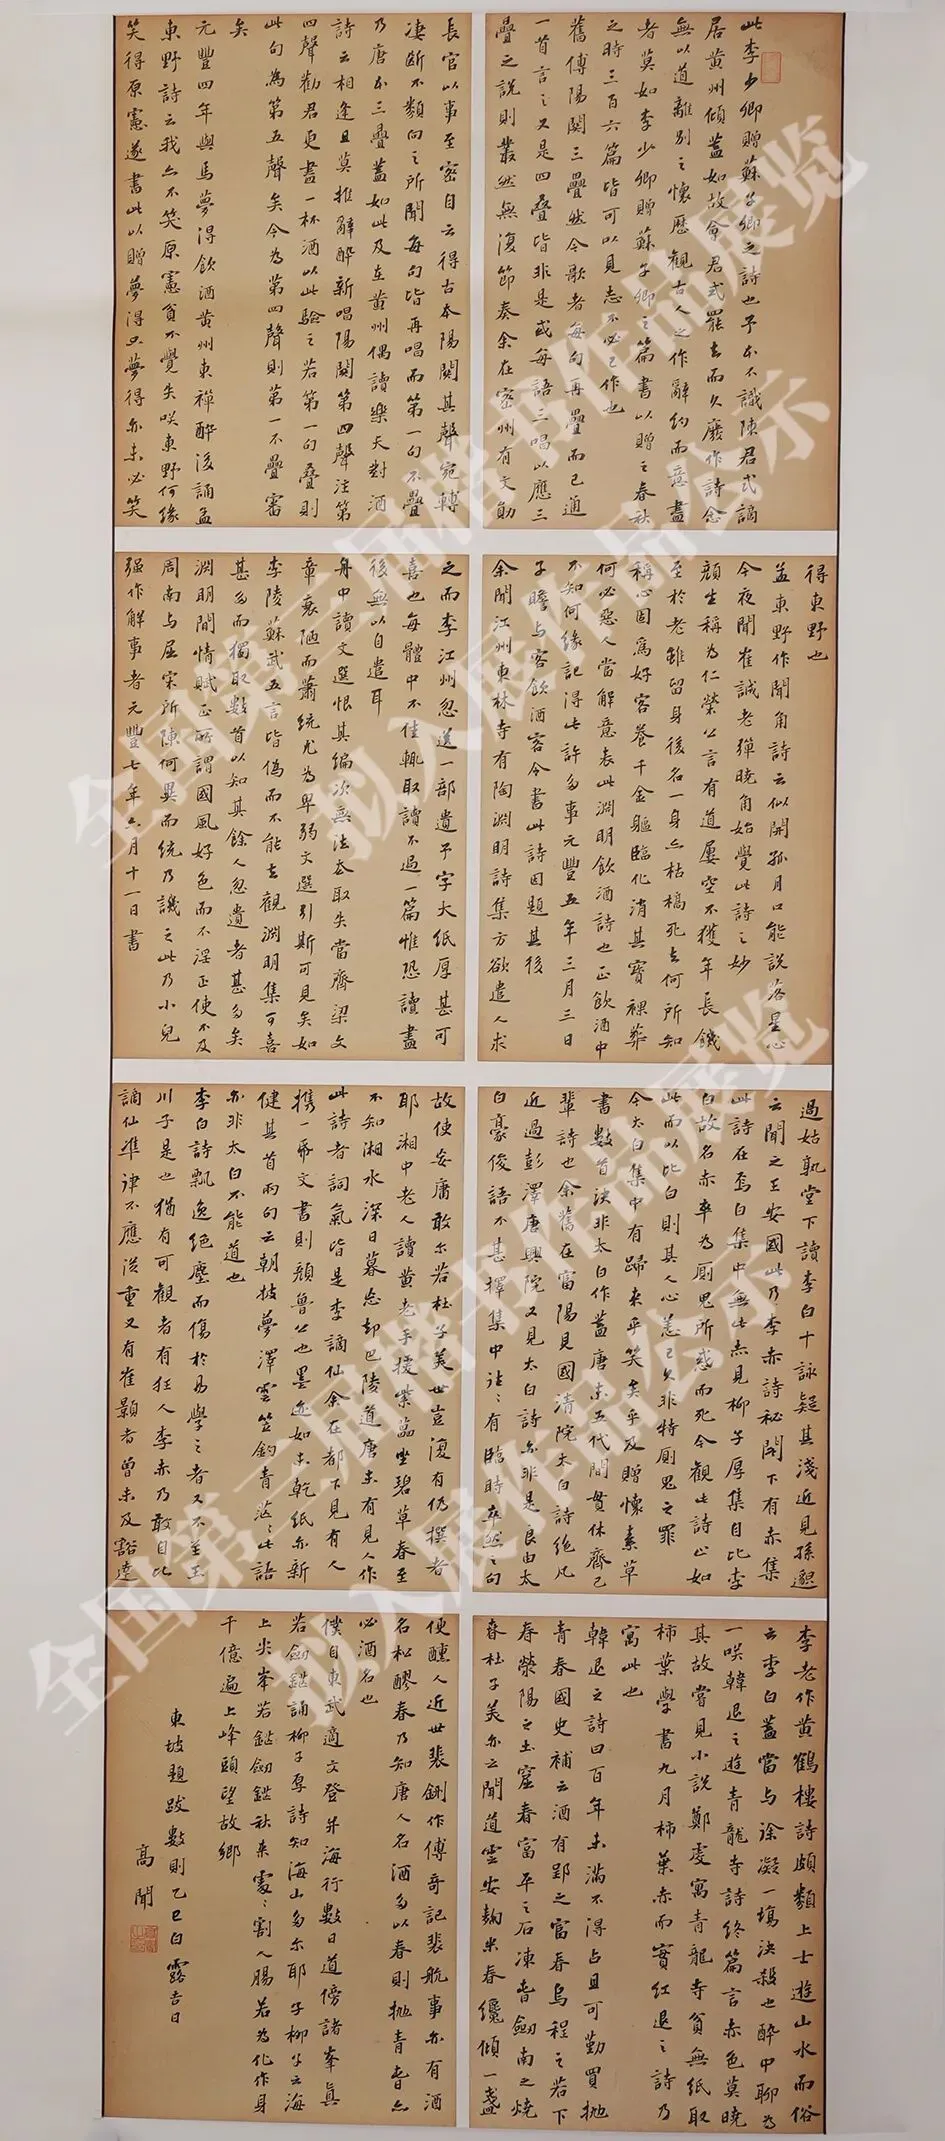 此李少卿贈蘇子卿之詩也予本不識陳君式謫
居黃州傾蓋如故會君式罷去而久廢作詩念
無以道離別之懷歷觀古人之作辭約而意盡
者莫如李少卿贈蘇子卿之篇書以贈之春秋
之時三百六篇皆可以見志不必己作也
舊傳陽關三疊然今歌者每句再疊而已通
一首言之又是四疊皆非是或每語三唱以應三
疊之說則叢然無復節奏余在密州有文勛
長官以事至密自云得古本陽關其聲宛轉
凄斷不類向之所聞每句皆再唱而第一句不疊
乃唐本三疊蓋如此及在黃州偶讀樂天對酒
詩云相逢且莫推辭醉新唱陽關第四聲注第
四聲勸君更盡一杯酒以此驗之若第一句疊則
此句為第五聲矣今為第四聲則第一不疊審
矣
元豐四年與馬夢得飲酒黃州東禪醉後誦孟
東野詩云我亦不笑原憲貧不覺失咲東野何緣
笑得原憲遂書此以贈夢得只夢得亦未必笑
得東野也
孟東野作聞角詩云似開孤月口能說落星心
今夜聞崔誠老彈曉角始覺此詩之妙
顏生稱為仁榮公言有道屢空不獲年長饑
至於老雖留身後名一身亦枯槁死去何所知
稱心固為好客養千金軀臨化消其寶裸葬
何必惡人當解意表此淵明飲酒詩也正飲酒中
不知何緣記得此許多事元豐五年三月三日
子瞻與客飲酒客令書此詩因題其後
余聞江州東林寺有陶淵明詩集方欲遣人求
之而李江州忽送一部遺予字大紙厚甚可
喜也每體中不佳輒取讀不過一篇惟恐讀盡
後無以自遣耳
舟中讀文選恨其編次無法去取失當齊梁文
章衰陋而蕭統尤為卑弱文選引斯可見矣如
李陵蘇武五言皆偽而不能去觀淵明集可喜
甚多而獨取數首以知其餘人忽遺者甚多矣
淵明閒情賦正所謂國風好色而不淫正使不及
周南與屈宋所陳何異而統乃譏之此乃小兒
強作解事者元豐七年六月十一日書
過姑孰堂下讀李白十詠疑其淺近見孫邈
云聞之王安國此乃李赤詩秘閣下有赤集
此詩在焉白集中無此赤見柳子厚集自比李
白故名赤卒為厠鬼所惑而死今觀此詩止如
此而以比白則其人心恙已久非特厠鬼之罪
今太白集中有歸來乎笑矣乎及贈懷素草
書數首決非太白作蓋唐末五代間貫休齊己
輩詩也余舊在富陽見國清院太白詩絕凡
近過彭澤唐興院又見太白詩亦非是良由太
白豪俊語不甚擇集中往々有臨時率然之句
故使妄庸敢尔若杜子美世豈復有偽撰者
耶湘中老人讀黃老手援紫藟坐碧草春至
不知湘水深日暮忘却巴陵道唐末有見人作
此詩者詞氣皆是李謫仙余在都下見有人
携一紙文書則顏魯公也墨迹如未乾紙亦新
健其首兩句云朝披夢澤雲笠釣青茫々此語
亦非太白不能道也
李白詩飄逸絕塵而傷於易學之者又不至玉
川子是也猶有可觀者有狂人李赤乃敢自比
謫仙準律不應從重又有崔顥者曾未及豁達
李老作黃鶴樓詩頗類上士遊山水而俗
云李白蓋當与徐凝一場決殺也醉中聊為
一咲韓退之遊青龍寺詩終篇言赤色莫曉
其故嘗見小說鄭虔寓青龍寺貧無紙取
柿葉學書九月柿葉赤而實紅退之詩乃
寓此也
韓退之詩曰百年未滿不得占且可勤買拋
青春國史補云酒有郢之富春烏程之若下
春滎陽之土窟春富平之石凍春劍南之燒
春杜子美亦云聞道雲安麴米春纔傾一盞
便醺人近世裴鉶作傳奇記裴航事亦有酒
名松醪春乃知唐人名酒多以春則拋青春亦
必酒名也
僕自東武適文登并海行數日道傍諸峯真
若劍鋩誦柳子厚詩知海山多尔耶子柳子云海
上尖峯若劍鋩秋來處々割人腸若為化作身
千億遍上峰頭望故鄉
東坡題跋數則乙巳白露吉日
高聞
全国第三届楷书作品展览
拟入展作品公示
全国第三届楷书作品展览
拟入展作品公示